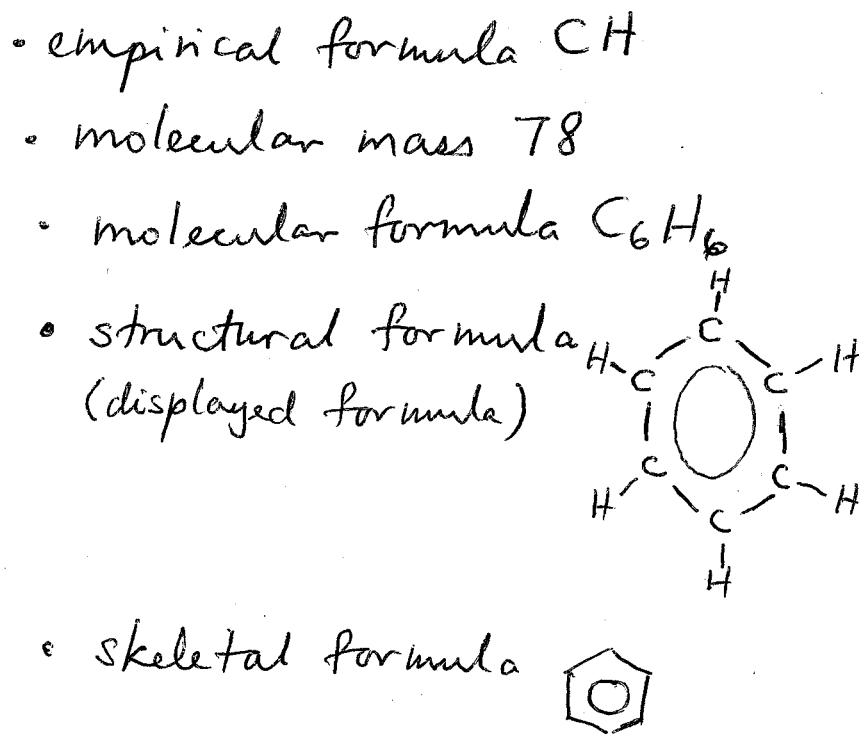 • empirical formula CH
• molecular mass 78
• molecular formula C₆H₆
• structural formula
(displayed formula)
H
C
H C C H
C C
H C H
H
• skeletal formula